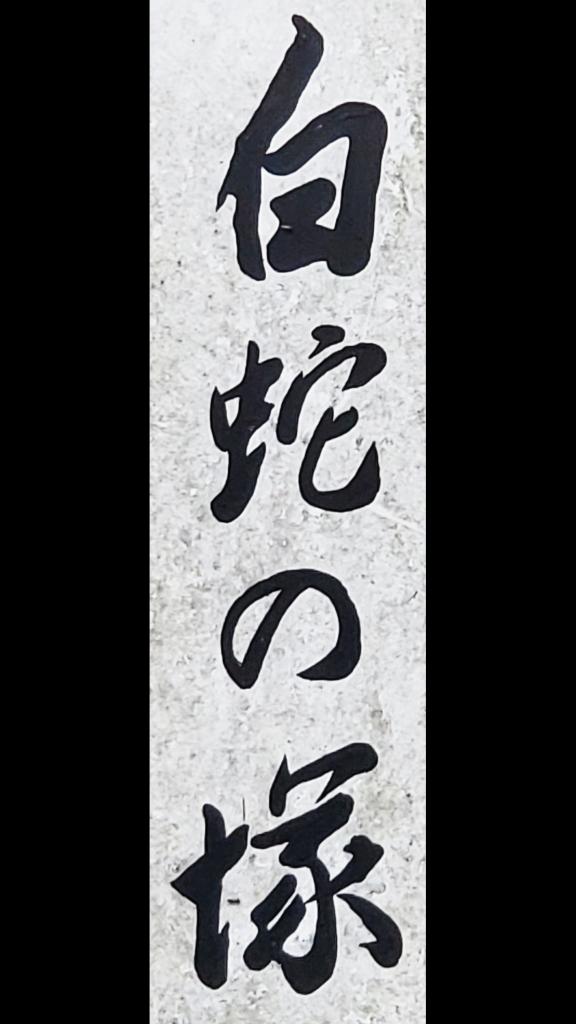 白蛇の塚